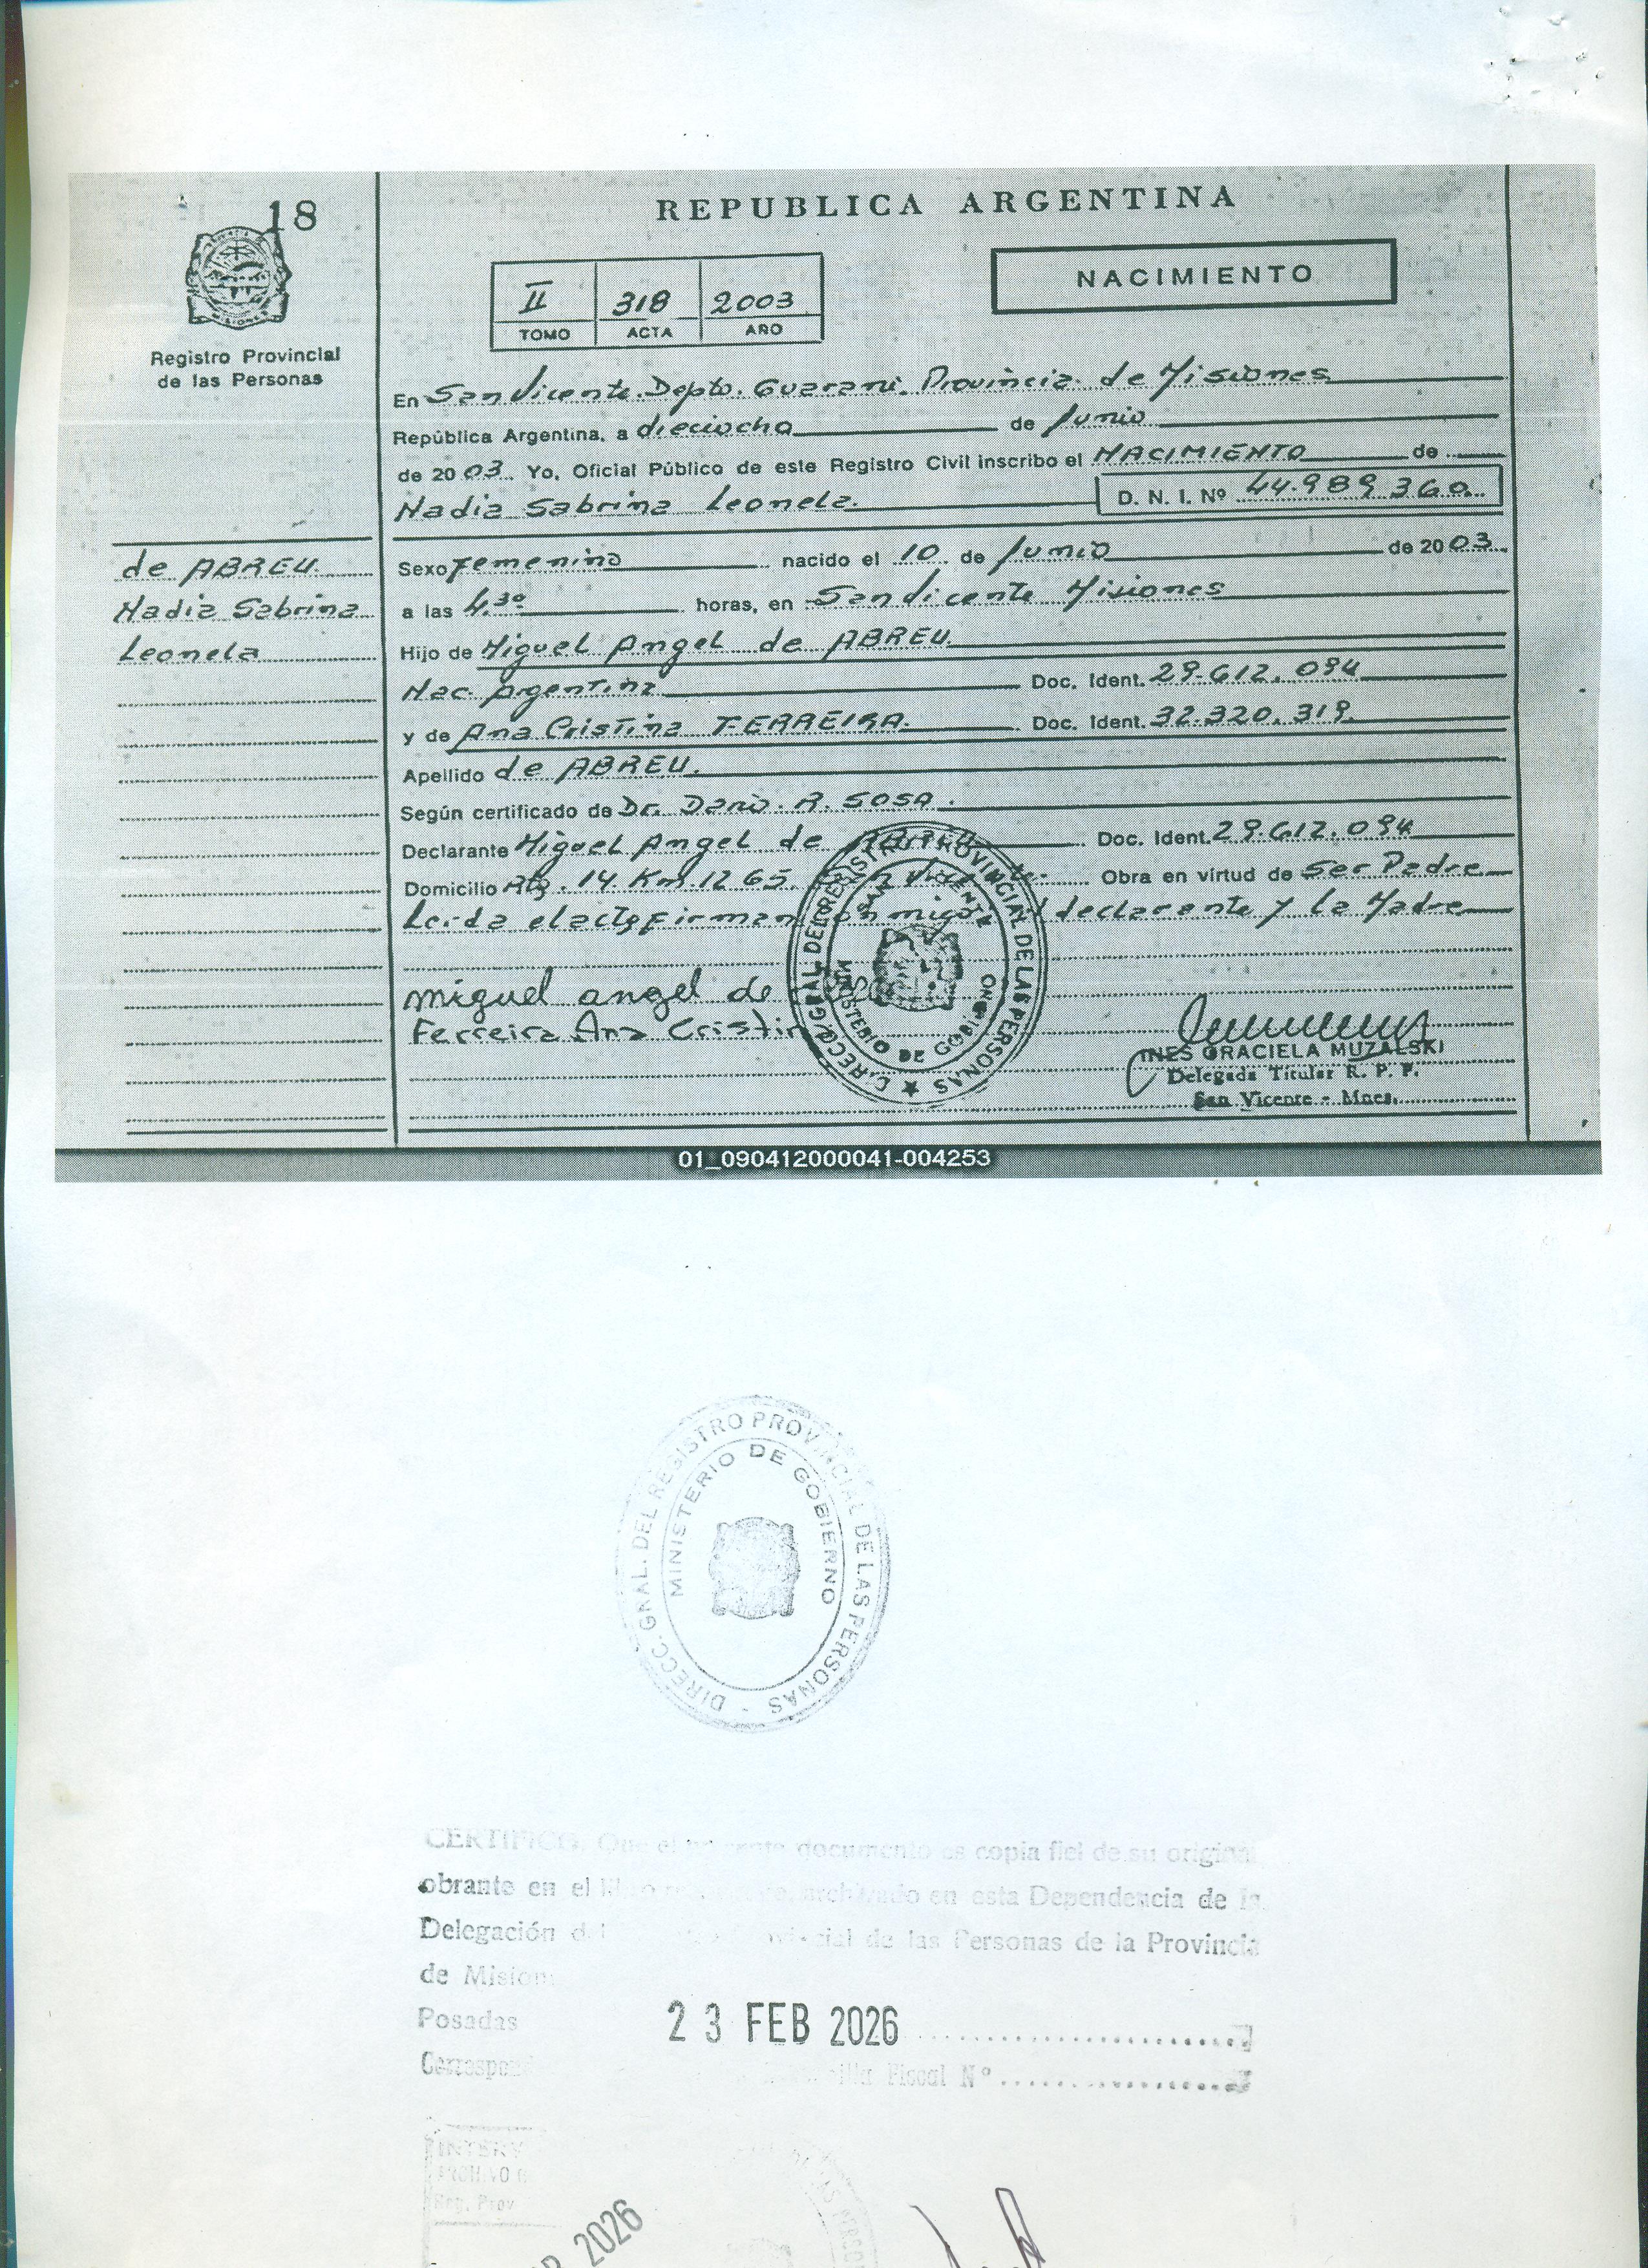 18
Registro Provincial
de las Personas
REPUBLICA ARGENTINA
NACIMIENTO
II 318 2003
TOMO ACTA AÑO
En San Vicente. Depto. Guarani. Provincia de Misiones
República Argentina, a dieciocho de Junio
de 2003. Yo, Oficial Público de este Registro Civil inscribo el NACIMIENTO de
Nadia Sabrina Leonela. D. N. I. Nº 44.989.360
de ABREU
Nadia Sabrina
Leonela
Sexo Femenino nacido el 10 de Junio de 2003
a las 4.30 horas, en San Vicente Misiones
Hijo de Miguel Angel de ABREU.
Nac. Argentina Doc. Ident. 29.612.094
y de Ana Cristina FERREIRA. Doc. Ident. 32.320.319.
Apellido de ABREU.
Según certificado de Dr. Dario. R. SOSA.
Declarante Miguel Angel de ABREU Doc. Ident. 29.612.094
Domicilio Rta. 14 Km. 1265. Obra en virtud de Ser Padre
Leida el acta firman conmigo el declarante y la Madre
miguel angel de
Ferreira Ana Cristin
DIRECC. GRAL. DEL REGISTRO PROVINCIAL DE LAS PERSONAS
SAN VICENTE
MINISTERIO DE GOBIERNO
INES GRACIELA MUZALSKI
Delegada Titular R. P. P.
San Vicente - Mnes.
01_090412000041-004253
DIRECC. GRAL. DEL REGISTRO PROVINCIAL DE LAS PERSONAS -
MINISTERIO DE GOBIERNO
CERTIFICO, Que el documento es copia fiel de su original
obrante en el archivado en esta Dependencia de la
Delegación del de las Personas de la Provincia
de Mision
Posadas 23 FEB 2026
Fiscal Nº
2026